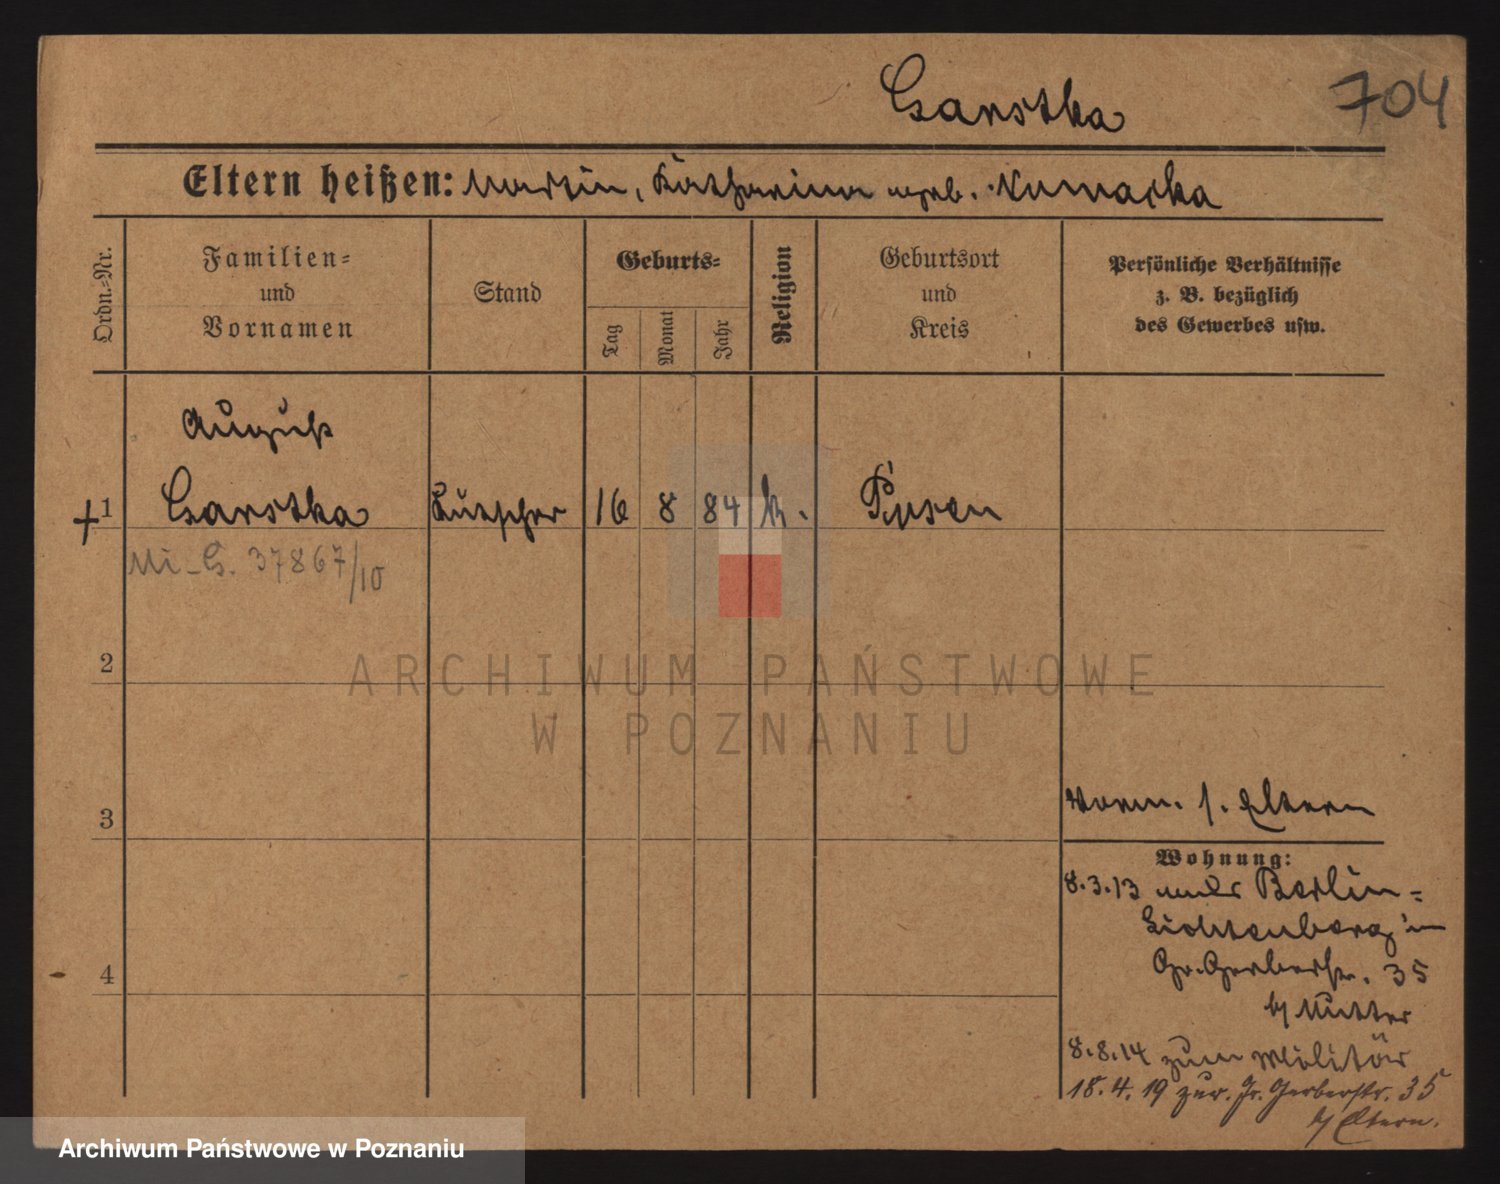 Garstka
704
Eltern heißen: Martin, Katharina geb. Nowacka
Ordn.-Nr.
Familien-
und
Vornamen
Stand
Geburts-
Tag
Monat
Jahr
Religion
Geburtsort
und
Kreis
Persönliche Verhältnisse
z. B. bezüglich
des Gewerbes usw.
August
+ 1
Garstka
Kutscher
16
8
84
k.
Posen
Mi-G. 37867/10
ARCHIWUM PAŃSTWOWE
W POZNANIU
2
3
4
vorm. s. Eltern
Wohnung:
8.3.13 Berlin-
Lichtenberg in
Gr. Gerberstr. 35
b/ Mutter
8.8.14 zum Militär
18.4.19 zur. Gr. Gerberstr. 35
b/ Eltern.
Archiwum Państwowe w Poznaniu